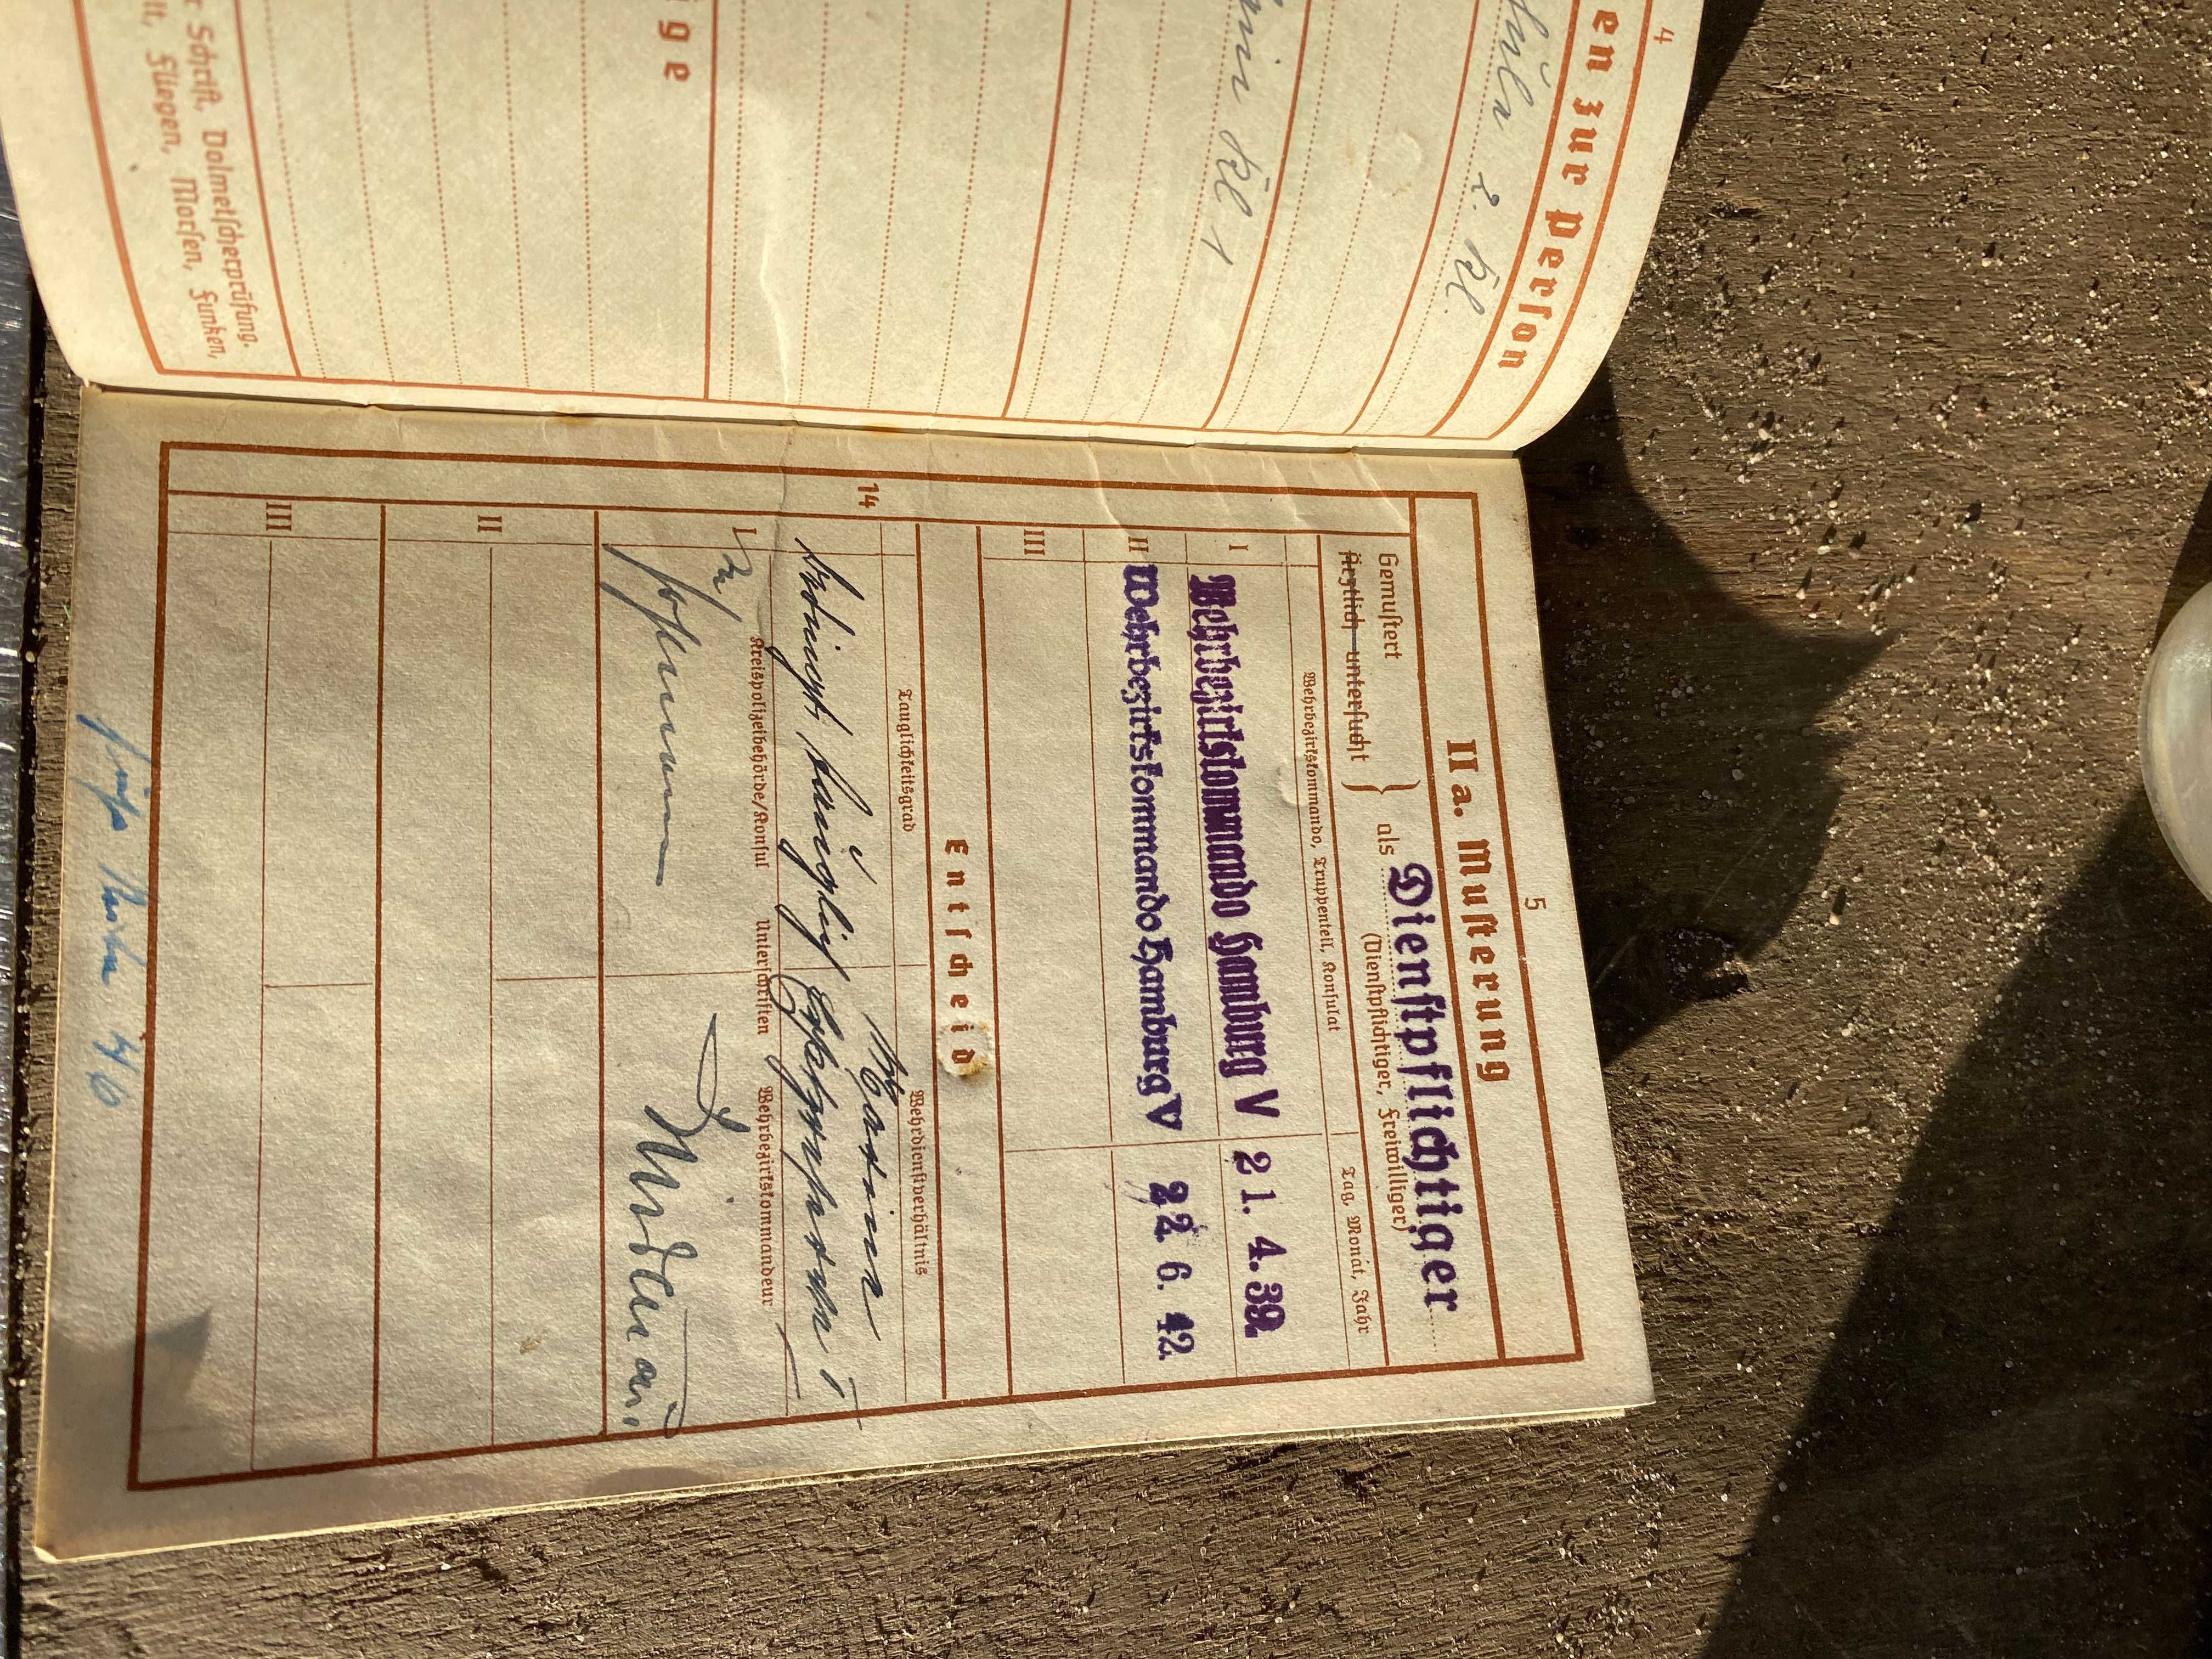 4
en zur Person
2. Kl.
Kl 1
ige
Schrift, Dolmetscherprüfung.
Fliegen, Morsen, Funken,
5
IIa. Musterung
Gemustert
Ärztlich untersucht
} als Dienstpflichtiger
(Dienstpflichtiger, Freiwilliger)
Wehrbezirkskommando, Truppenteil, Konsulat
Tag, Monat, Jahr
I Wehrbezirkskommando Hamburg V 21. 4. 39.
II Wehrbezirkskommando Hamburg V 22 6. 42.
III
Entscheid
Tauglichkeitsgrad
Wehrdienstverhältnis
14
bedingt tauglich
Marine
Ersatzreserve I
Unterschriften
Kreispolizeibehörde/Konsul
Wehrbezirkskommandeur
I
II
III